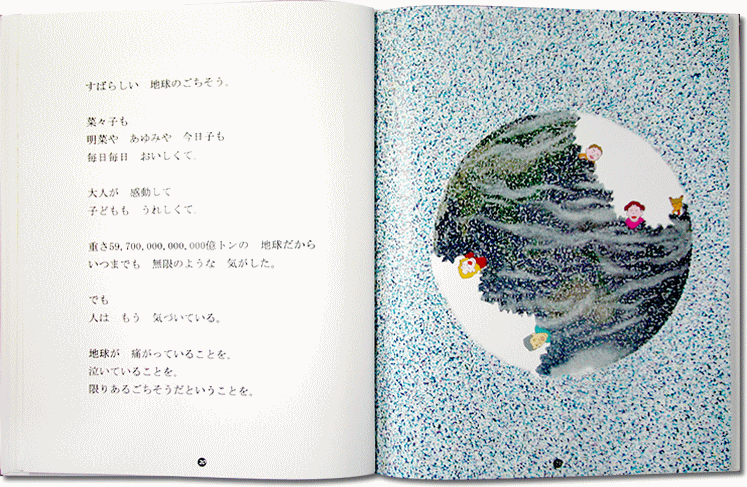 すばらしい　地球のごちそう。
菜々子も
明菜や　あゆみや　今日子も
毎日毎日　おいしくて、
大人が　感動して
子どもも　うれしくて、
重さ59,700,000,000,000億トンの　地球だから
いつまでも　無限のような　気がした。
でも
人は　もう　気づいている。
地球が　痛がっていることを。
泣いていることを。
限りあるごちそうだということを。
20